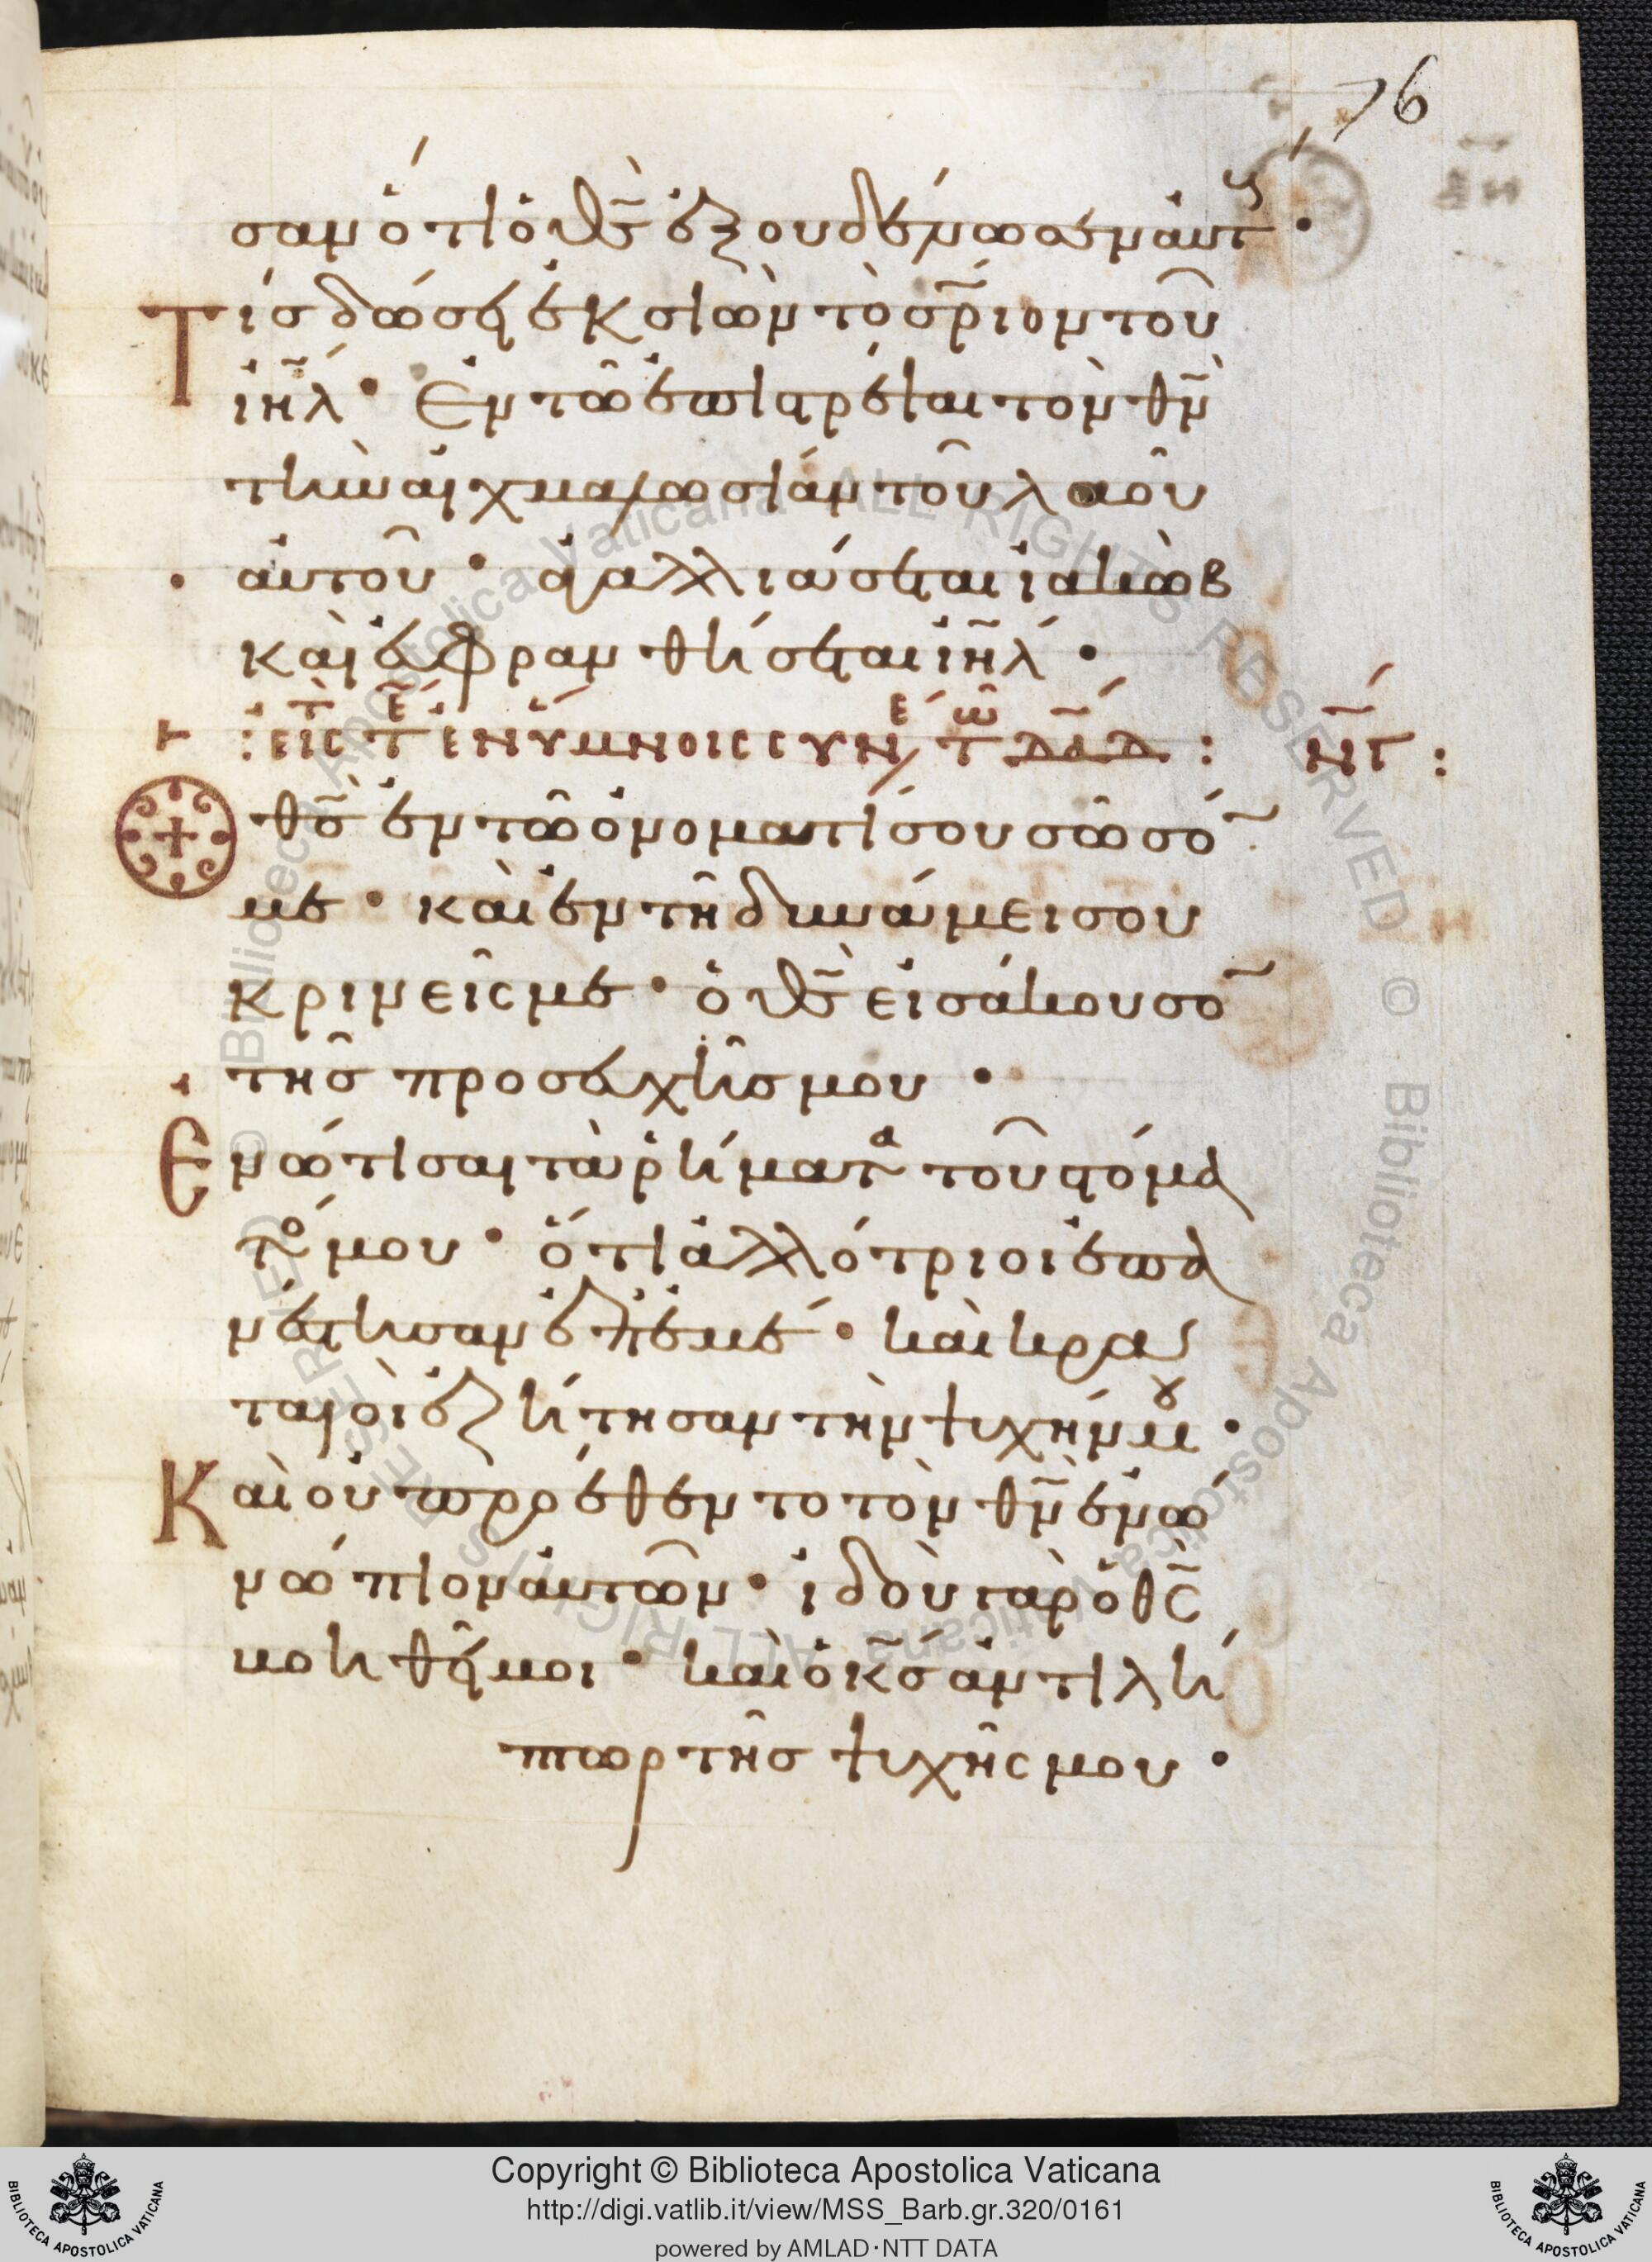 76
σαν ὅτι ὁ θς̄ ἐξουδένωσεν αὐτ(ούς) ·
Τίς δώσει ἐκ σιὼν τὸ σρ̄ιον τοῦ
ἰηλ̄ · Ἐν τῶ ἐπιστρέψαι τὸν θν̄
τὴν αἰχμαλωσίαν τοῦ λαοῦ
αὐτοῦ · ἀγαλλιάσεται ἰακὼβ
καὶ εὐφρανθήσεται ἰηλ̄ ·
: ΕΙC Τ ΤΕ ΕΝ ΥΜΝΟΙC CΥΝΕ ΤΩ ΔΑΔ : ΝΓ :
Ὁ θς̄ ἐν τῶ ὀνόματί σου σῶσό̄
με · καὶ ἐν τῆ δυνάμει σου
κρινεῖς με · ὁ θς̄ εἰσάκουσο̄
τῆς προσευχῆς μου ·
Ἐνώτισαι τὰ ῥήματα τοῦ στόμα
τος μου · ὅτι ἀλλότριοι ἐπα
νέστησαν ἐπ' ἐμέ · καὶ κραται
ταιοὶ ἐζήτησαν τὴν ψυχήν μου ·
Καὶ οὐ προέθεντο τὸν θν̄ ἐνώ
νώπιον αὐτῶν · ἰδοὺ γὰρ ὁ θς̄
βοηθεῖ μοι · καὶ ὁ κς̄ ἀντιλή
πτωρ τῆς ψυχῆς μου ·
Copyright © Biblioteca Apostolica Vaticana
http://digi.vatlib.it/view/MSS_Barb.gr.320/0161
powered by AMLAD·NTT DATA